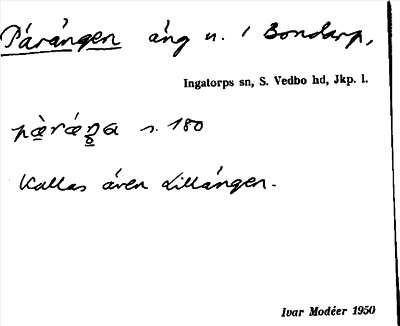 Pårängen äng n. i Bondarp,
Ingatorps sn, S. Vedbo hd, Jkp. l.
s. 180
Kallas även Lillängen.
Ivar Modéer 1950